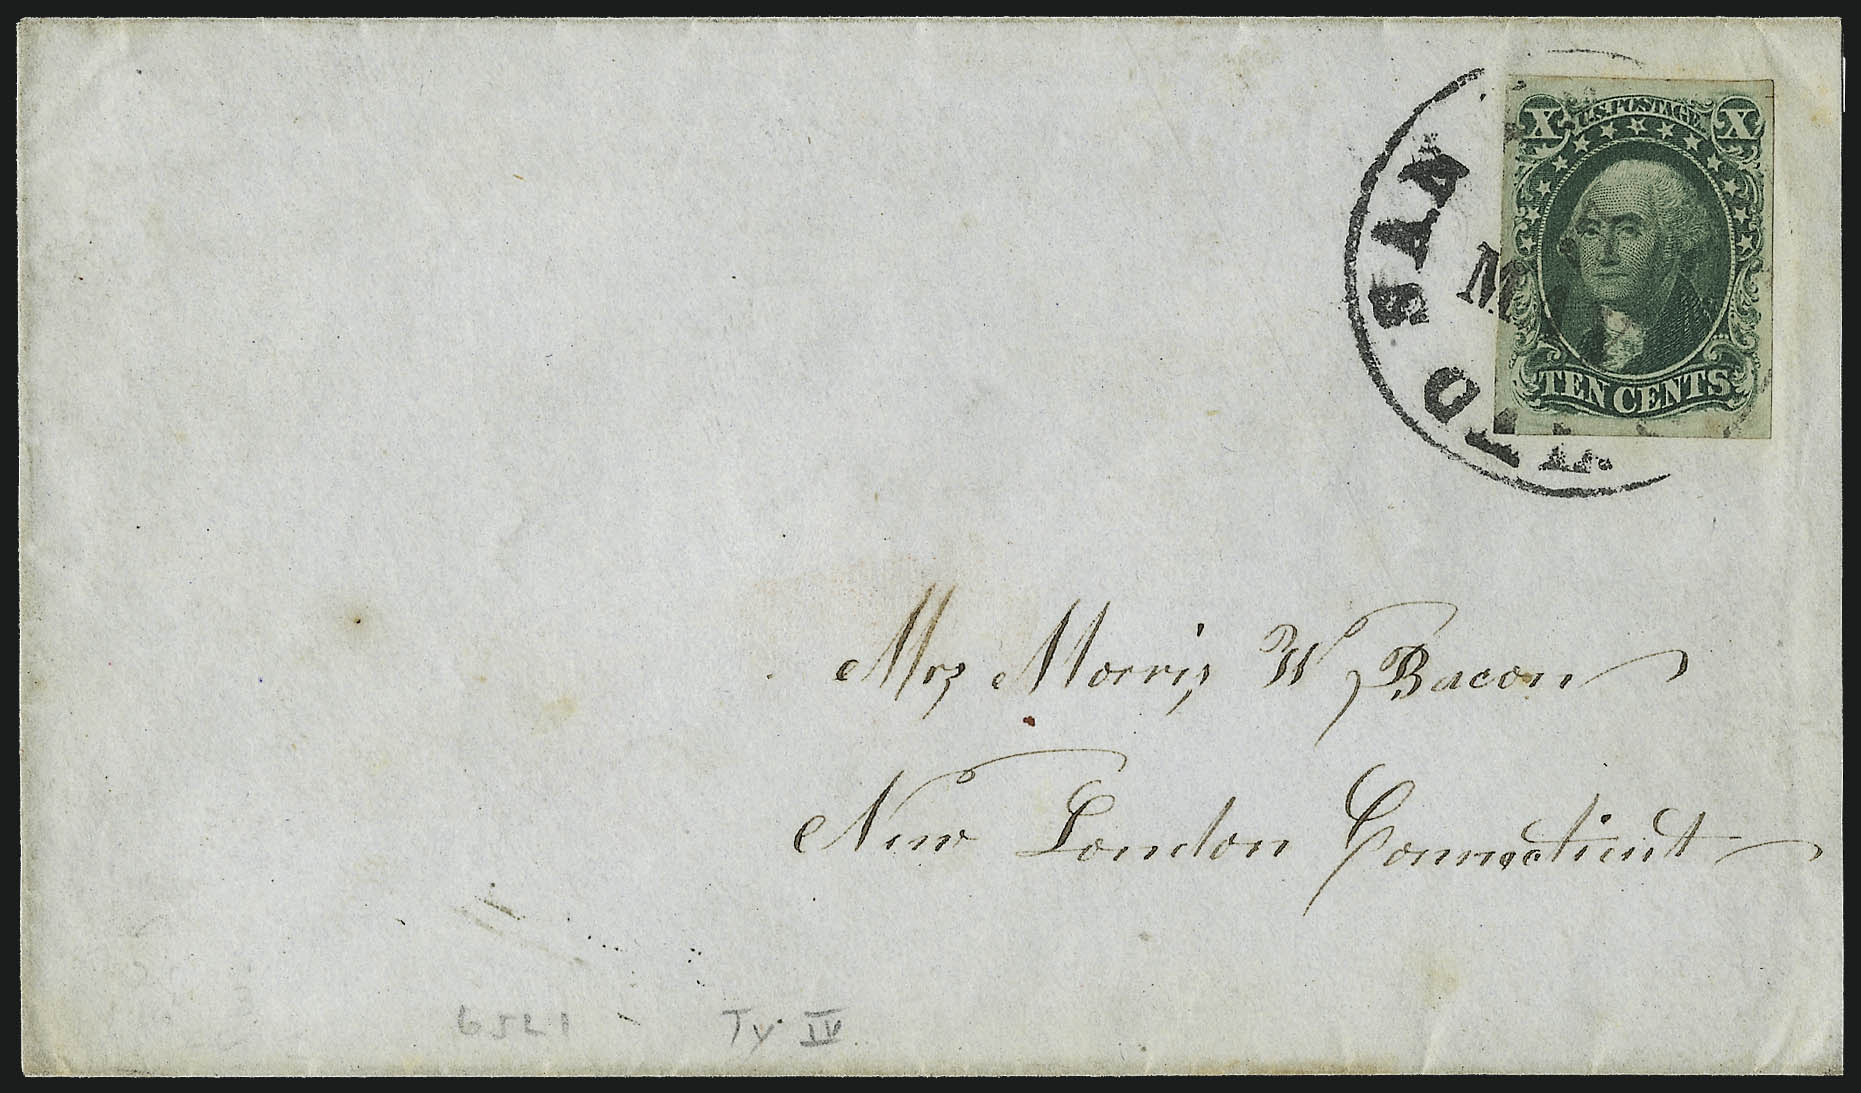 X U.S. POSTAGE X
TEN CENTS
SAN
M
D
Mrs Morris W Bacon
New London Connecticut
65L1
Ty IV